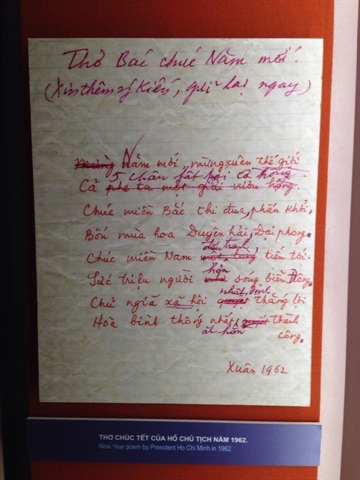 Thơ Bác chúc Năm mới.
(Xin thêm ý kiến, gửi lại ngay)
Năm mới, mừng xuân thế giới
5 châu cờ hồng
Cả phe ta một giải vườn hồng.
Chúc miền Bắc thi đua, phấn khởi,
Bốn mùa hoa Duyên hải, Đại phong.
đấu tranh
Chúc miền Nam tiến tới.
hơn
Sức triệu người song biển Đông.
nhất định
Chủ nghĩa xã hội thắng lợi
Hoà bình thống nhất thành
ắt hẳn công.
Xuân 1962
THƠ CHÚC TẾT CỦA HỒ CHỦ TỊCH NĂM 1962.
New Year poem by President Ho Chi Minh in 1962.